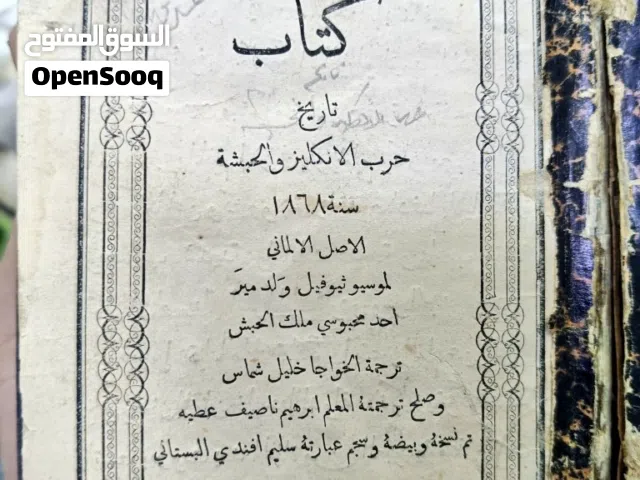 السوق المفتوح
OpenSooq
كتاب
تاريخ
حرب الانكليز والحبشة
سنة ١٨٦٨
الاصل الالماني
لموسيو ثيوفيل ولد ميرَ
احد محبوسي ملك الحبش
ترجمة الخواجا خليل شماس
وصلح ترجمتهُ المعلم ابرهيم ناصيف عطيه
ثم نسخهُ وبيضهُ وسجم عبارتهُ سليم افندي البستاني